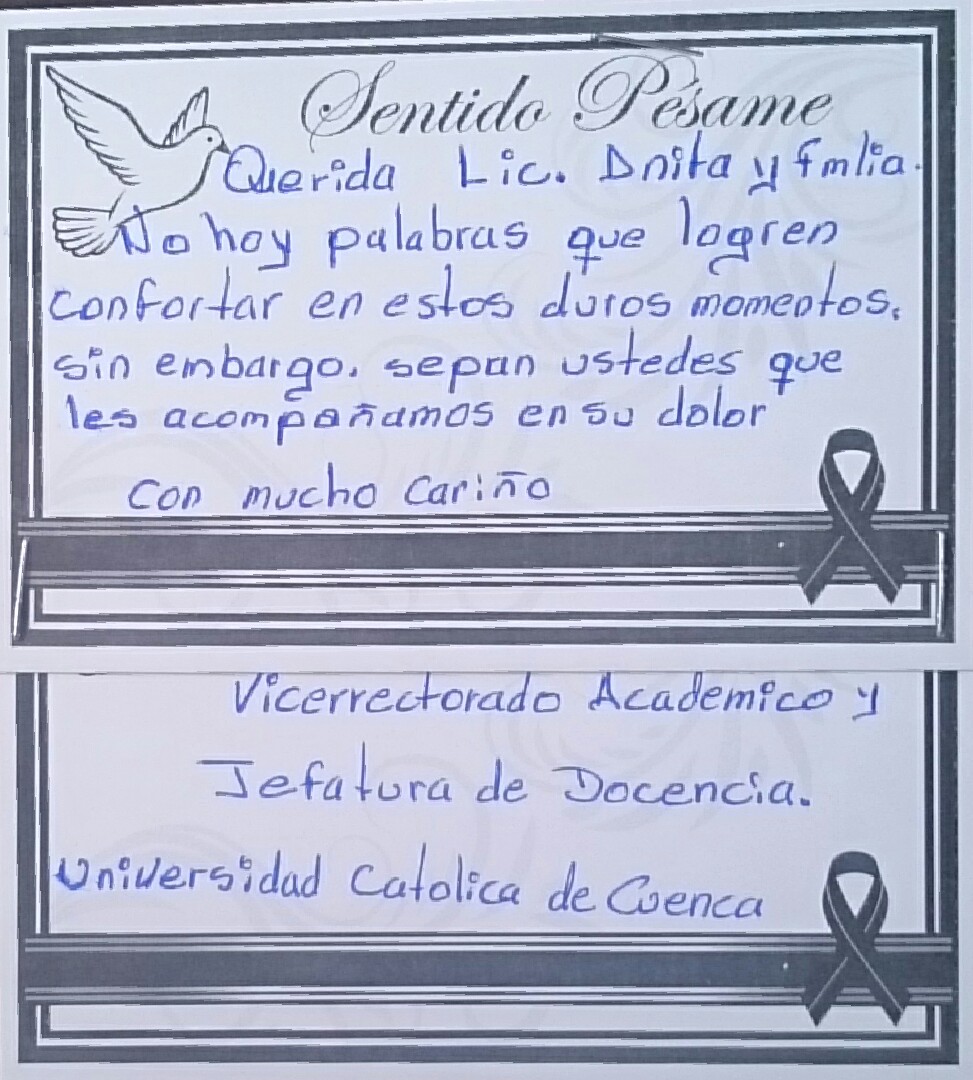 Sentido Pésame
Querida Lic. Dnita y fmlia.
No hay palabras que logren
confortar en estos duros momentos.
sin embargo. sepan ustedes que
les acompañamos en su dolor
con mucho cariño
Vicerrectorado Academico y
Jefatura de Docencia.
Universidad Catolica de Cuenca